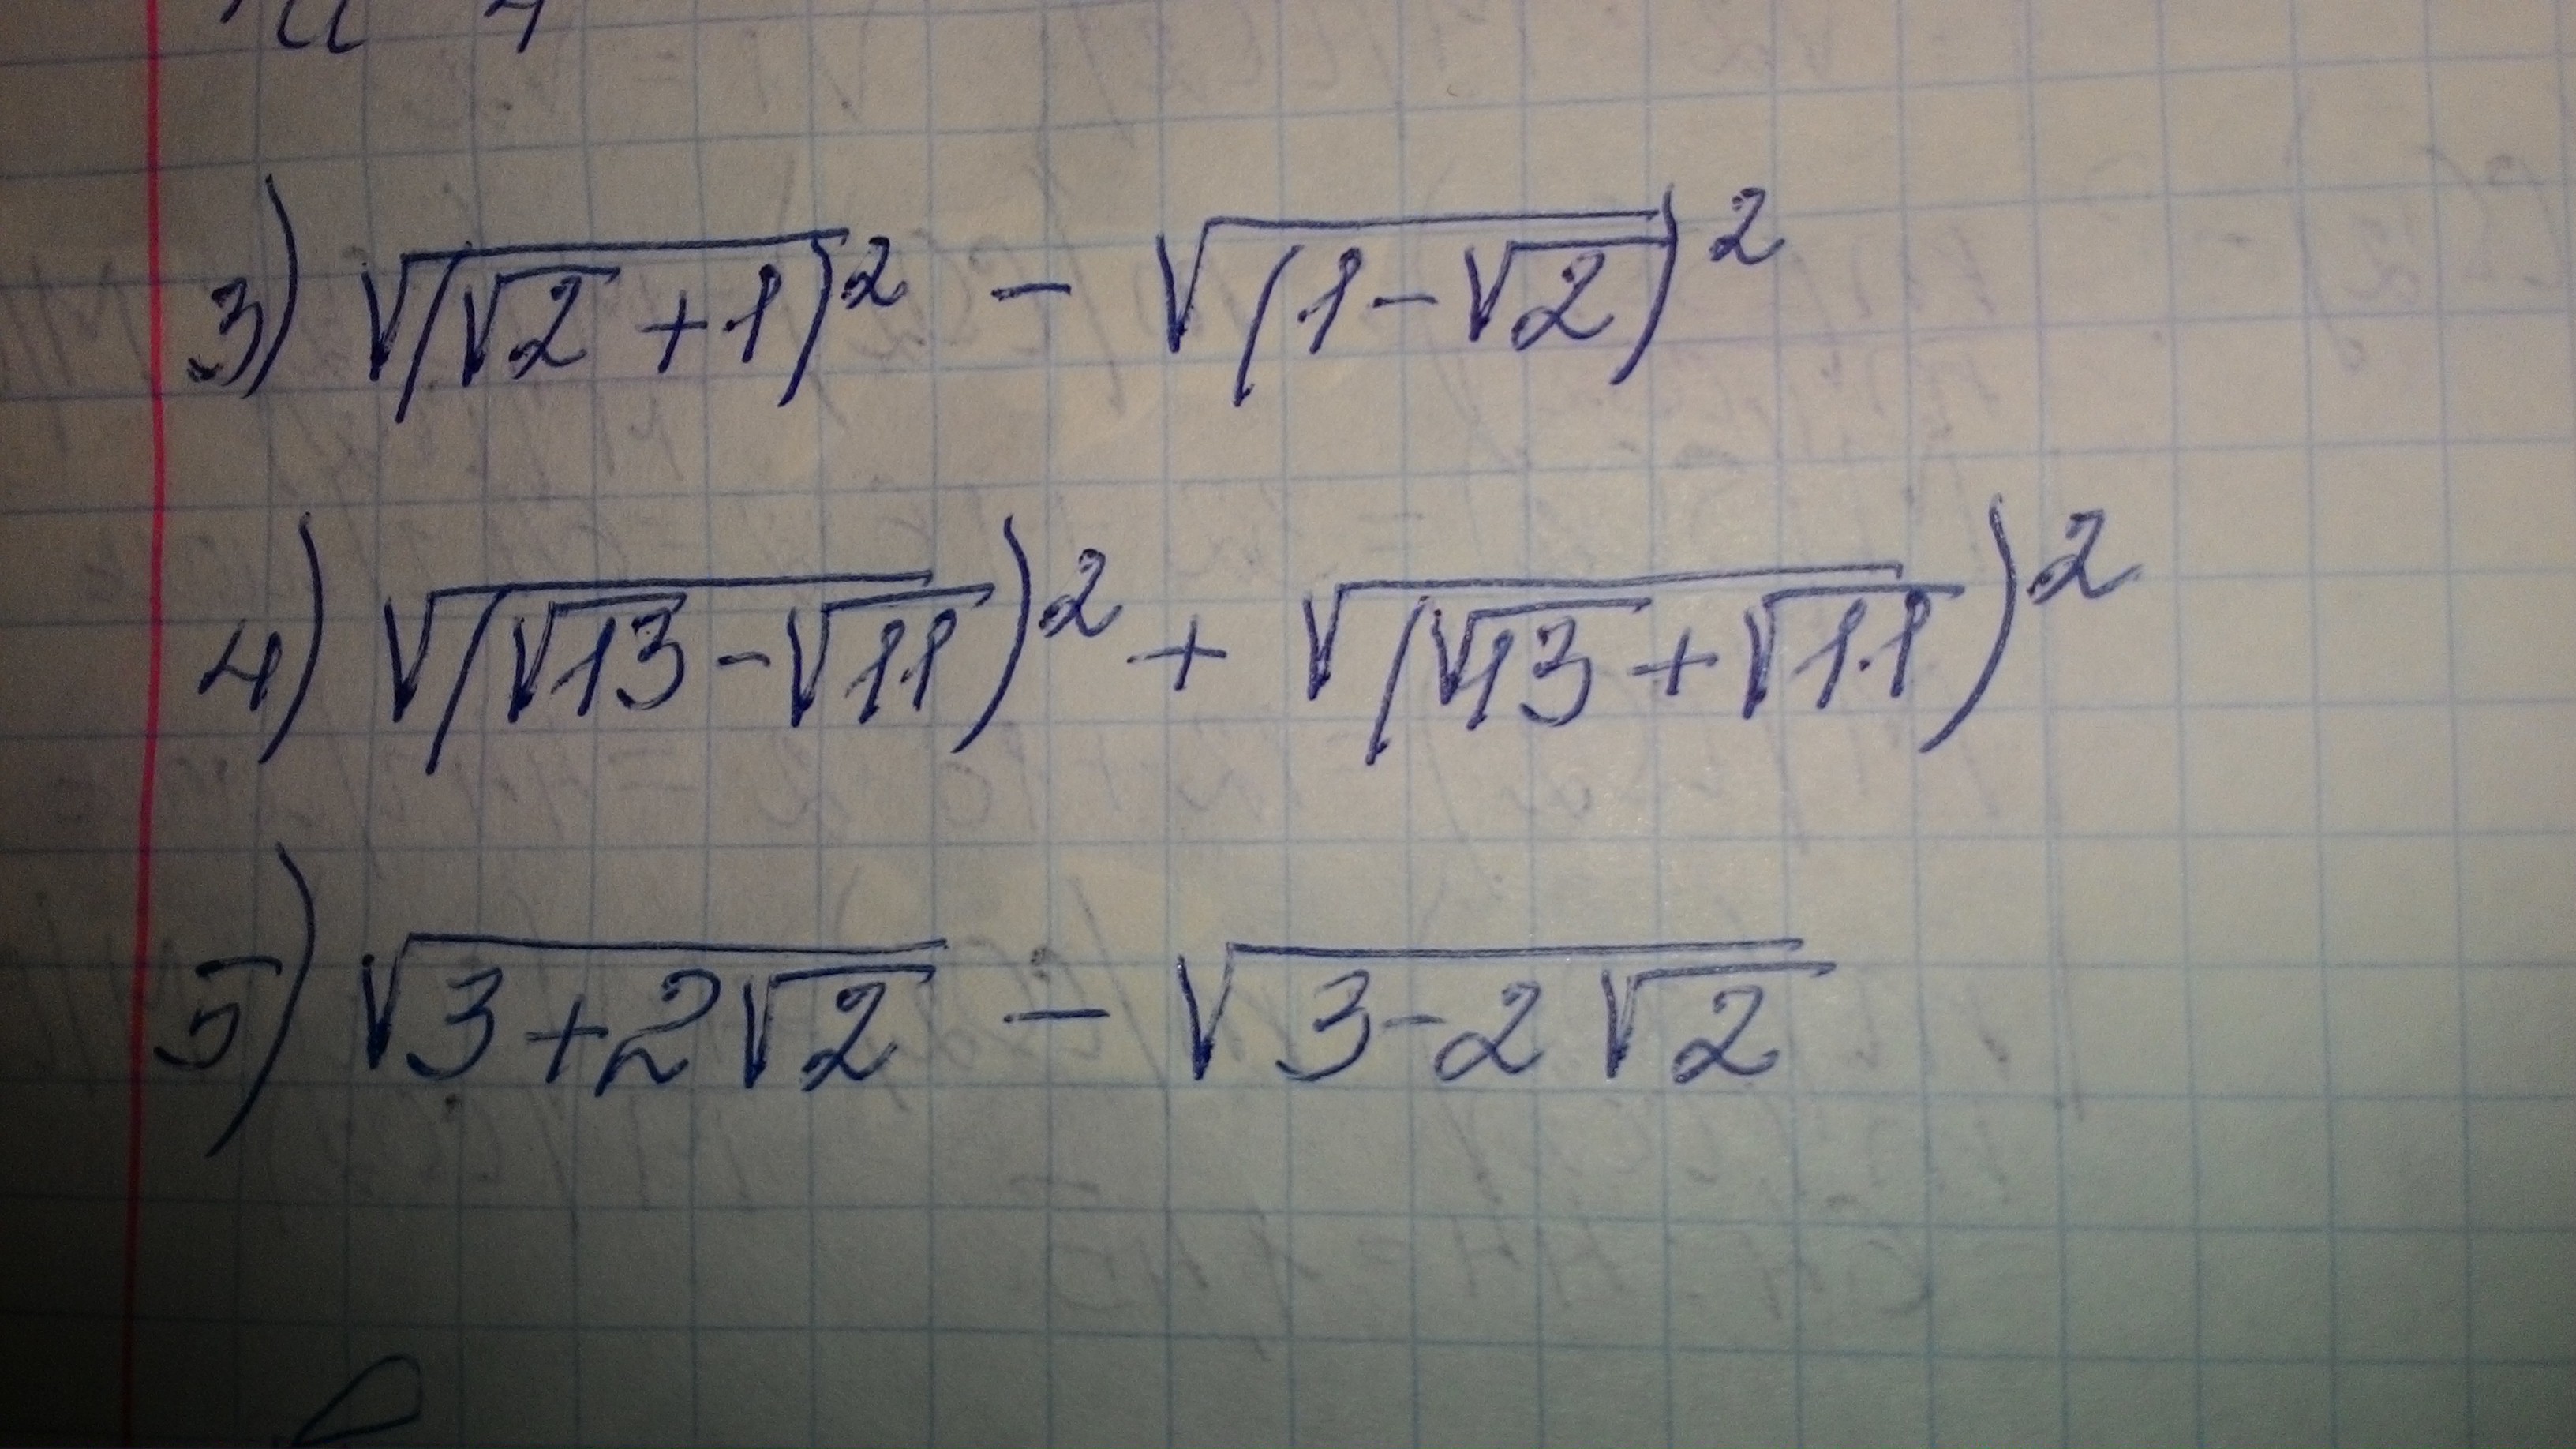 3) √(√2 + 1)² - √(1 - √2)²
4) √(√13 - √11)² + √(√13 + √11)²
5) √(3 + 2√2) - √(3 - 2√2)